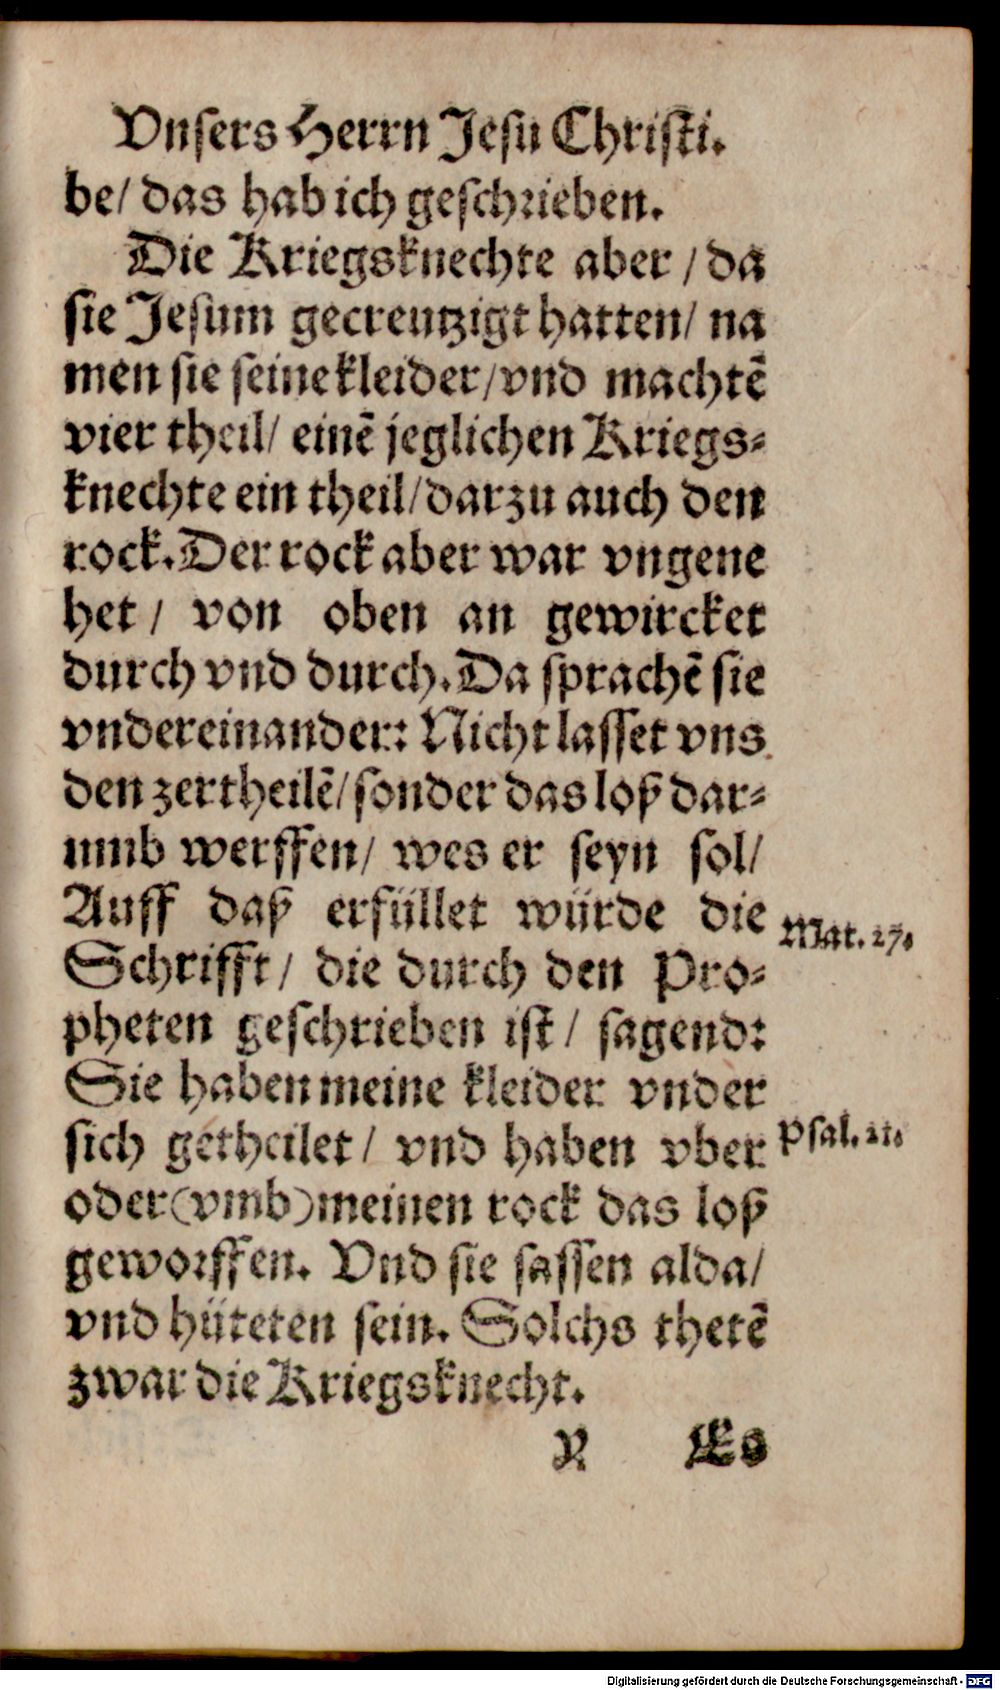 Vnsers Herrn Jesu Christi.
be/ das hab ich geschrieben.
Die Kriegsknechte aber / da
sie Jesum gecreutzigt hatten/ na
men sie seine kleider/vnd machtē
vier theil/ einē jeglichen Kriegs-
knechte ein theil/darzu auch den
rock. Der rock aber war vngene
het / von oben an gewircket
durch vnd durch. Da sprachē sie
vndereinander: Nicht lasset vns
den zertheilē/sonder das loß dar-
umb werffen/ wes er seyn sol/
Auff daß erfüllet würde die
Mat. 27.
Schrifft / die durch den Pro-
pheten geschrieben ist / sagend:
Sie haben meine kleider vnder
sich getheilet / vnd haben vber
Psal. 21.
oder (vmb) meinen rock das loß
geworffen. Vnd sie sassen alda/
vnd hüteten sein. Solchs thetē
zwar die Kriegsknecht.
R Es
Digitalisierung gefördert durch die Deutsche Forschungsgemeinschaft - DFG